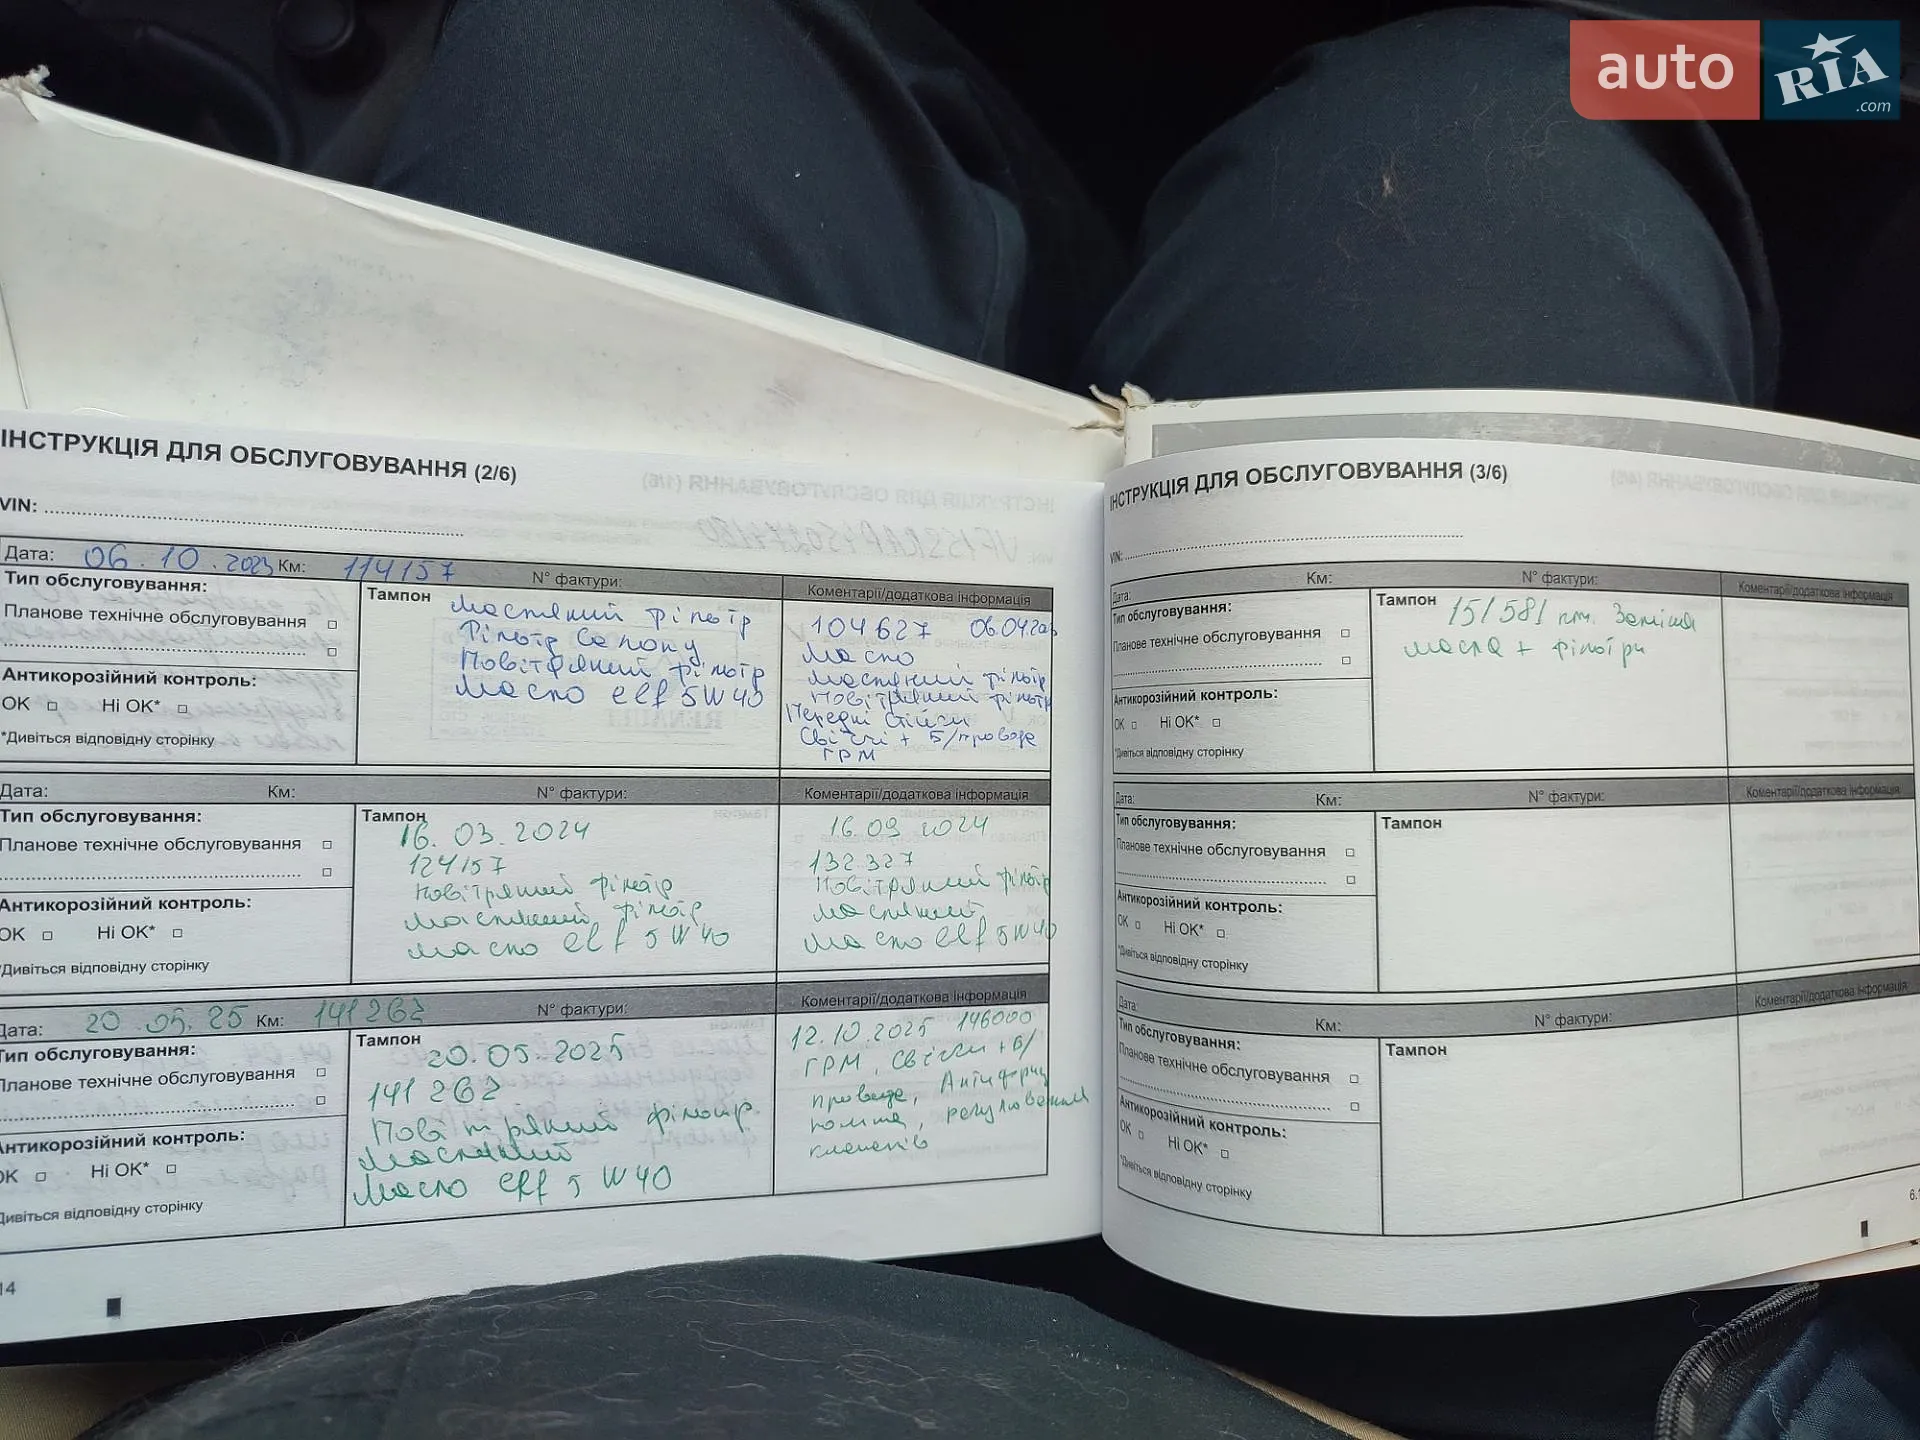 auto RIA.com
ІНСТРУКЦІЯ ДЛЯ ОБСЛУГОВУВАННЯ (2/6)
VIN:
Дата: 06.10.2023 Км: 114157 N° фактури:
Тип обслуговування:
Планове технічне обслуговування
Антикорозійний контроль:
ОК Ні ОК*
*Дивіться відповідну сторінку
Тампон
Масляний фільтр
Фільтр салону
Повітряний фільтр
Масло elf 5W40
Коментарії/додаткова інформація
104627 06.04.
Масло
Масляний фільтр
Повітряний фільтр
Передні стійки
Свічки + Б/провода
ГРМ
Дата: Км: N° фактури:
Тип обслуговування:
Планове технічне обслуговування
Антикорозійний контроль:
ОК Ні ОК*
*Дивіться відповідну сторінку
Тампон
16.03.2024
124157
Повітряний фільтр
Масляний фільтр
Масло elf 5W40
Коментарії/додаткова інформація
16.09.2024
132.327
Повітряний фільтр
Масляний
Масло elf 5W40
Дата: 20.05.25 Км: 141262 N° фактури:
Тип обслуговування:
Планове технічне обслуговування
Антикорозійний контроль:
ОК Ні ОК*
Дивіться відповідну сторінку
Тампон
20.05.2025
141262
Повітряний фільтр.
Масляний
Масло elf 5W40
Коментарії/додаткова інформація
12.10.2025 146000
ГРМ, Свічки + Б/
провода, Антифриз
помпа, регулювання
клапанів
14
ІНСТРУКЦІЯ ДЛЯ ОБСЛУГОВУВАННЯ (3/6)
VIN:
Дата: Км: N° фактури:
Тип обслуговування:
Планове технічне обслуговування
Антикорозійний контроль:
ОК Ні ОК*
*Дивіться відповідну сторінку
Тампон 151581 км. Заміна
масла + фільтри
Коментарії/додаткова інформація
Дата: Км: N° фактури:
Тип обслуговування:
Планове технічне обслуговування
Антикорозійний контроль:
ОК Ні ОК*
*Дивіться відповідну сторінку
Тампон
Коментарії/додаткова інформація
Дата: Км: N° фактури:
Тип обслуговування:
Планове технічне обслуговування
Антикорозійний контроль:
ОК Ні ОК*
*Дивіться відповідну сторінку
Тампон
Коментарії/додаткова інформація